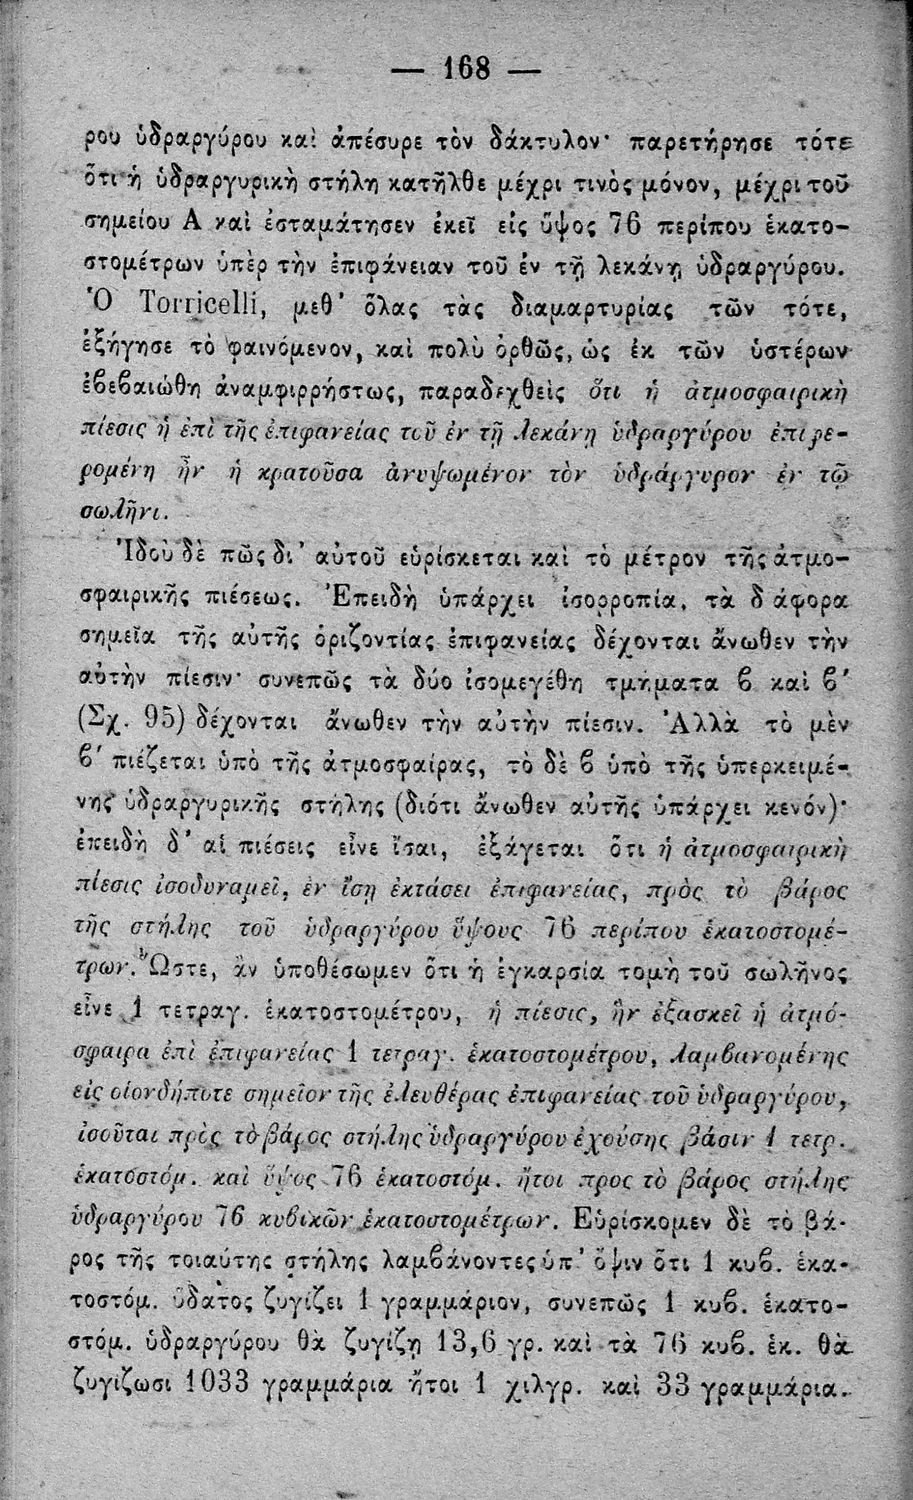 — 168 —
ρου ὑδραργύρου καὶ ἀπέσυρε τὸν δάκτυλον· παρετήρησε τότε
ὅτι ἡ ὑδραργυρικὴ στήλη κατῆλθε μέχρι τινὸς μόνον, μέχρι τοῦ
σημείου Α καὶ ἐσταμάτησεν ἐκεῖ εἰς ὕψος 76 περίπου ἑκατο-
στομέτρων ὑπὲρ τὴν ἐπιφάνειαν τοῦ ἐν τῇ λεκάνῃ ὑδραργύρου.
Ὁ Torricelli, μεθ' ὅλας τὰς διαμαρτυρίας τῶν τότε,
ἐξήγησε τὸ φαινόμενον, καὶ πολὺ ὀρθῶς, ὡς ἐκ τῶν ὑστέρων
ἐβεβαιώθη ἀναμφιρρήστως, παραδεχθεὶς ὅτι ἡ ἀτμοσφαιρικὴ
πίεσις ἡ ἐπὶ τῆς ἐπιφανείας τοῦ ἐν τῇ λεκάνῃ ὑδραργύρου ἐπιφε-
ρομένη ἦν ἡ κρατοῦσα ἀνυψωμένον τὸν ὑδράργυρον ἐν τῷ
σωλῆνι.
Ἰδοὺ δὲ πῶς δι' αὐτοῦ εὑρίσκεται καὶ τὸ μέτρον τῆς ἀτμο-
σφαιρικῆς πιέσεως. Ἐπειδὴ ὑπάρχει ἰσορροπία, τὰ δ άφορα
σημεῖα τῆς αὐτῆς ὁριζοντίας ἐπιφανείας δέχονται ἄνωθεν τὴν
αὐτὴν πίεσιν· συνεπῶς τὰ δύο ἰσομεγέθη τμήματα ϐ καὶ ϐ'
(Σχ. 95) δέχονται ἄνωθεν τὴν αὐτὴν πίεσιν. Ἀλλὰ τὸ μὲν
ϐ' πιέζεται ὑπὸ τῆς ἀτμοσφαίρας, τὸ δὲ ϐ ὑπὸ τῆς ὑπερκειμέ-
νης ὑδραργυρικῆς στήλης (διότι ἄνωθεν αὐτῆς ὑπάρχει κενόν)·
ἐπειδὴ δ' αἱ πιέσεις εἶνε ἴσαι, ἐξάγεται ὅτι ἡ ἀτμοσφαιρικὴ
πίεσις ἰσοδυναμεῖ, ἐν ἴσῃ ἐκτάσει ἐπιφανείας, πρὸς τὸ βάρος
τῆς στήλης τοῦ ὑδραργύρου ὕψους 76 περίπου ἑκατοστομέ-
τρων. Ὥστε, ἂν ὑποθέσωμεν ὅτι ἡ ἐγκαρσία τομὴ τοῦ σωλῆνος
εἶνε 1 τετραγ. ἑκατοστομέτρου, ἡ πίεσις, ἣν ἐξασκεῖ ἡ ἀτμό-
σφαιρα ἐπὶ ἐπιφανείας 1 τετραγ. ἑκατοστομέτρου, λαμβανομένης
εἰς οἱονδήποτε σημεῖον τῆς ἐλευθέρας ἐπιφανείας τοῦ ὑδραργύρου,
ἰσοῦται πρὸς τὸ βάρος στήλης ὑδραργύρου ἐχούσης βάσιν 1 τετρ.
ἑκατοστόμ. καὶ ὕψος 76 ἑκατοστόμ. ἤτοι προς τὸ βάρος στήλης
ὑδραργύρου 76 κυβικῶν ἑκατοστομέτρων. Εὑρίσκομεν δὲ τὸ βά-
ρος τῆς τοιαύτης στήλης λαμβάνοντες ὑπ' ὄψιν ὅτι 1 κυβ. ἑκα-
τοστόμ. ὕδατος ζυγίζει 1 γραμμάριον, συνεπῶς 1 κυβ. ἑκατο-
στόμ. ὑδραργύρου θὰ ζυγίζῃ 13,6 γρ. καὶ τὰ 76 κυβ. ἑκ. θὰ
ζυγίζωσι 1033 γραμμάρια ἤτοι 1 χιλγρ. καὶ 33 γραμμάρια.